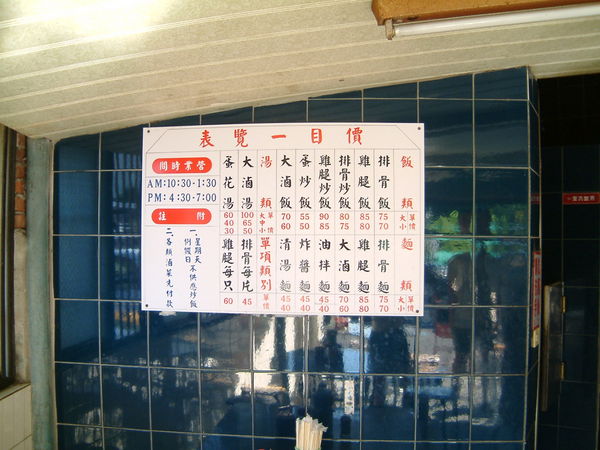 價目一覽表
飯類 單價 大 小
排骨飯 75 70
雞腿飯 85 80
排骨炒飯 80 75
雞腿炒飯 90 85
蛋炒飯 55 50
大滷飯 70 60
湯類 單價 大 中 小
大滷湯 100 65 50
蛋花湯 60 40 30
麵類 單價 大 小
排骨麵 75 70
雞腿麵 85 80
大滷麵 70 60
油拌麵 45 40
炸醬麵 45 40
清湯麵 45 40
單項類別 單價
排骨每片 45
雞腿每只 60
營業時間
AM:10:30-1:30
PM:4:30-7:00
附註
一、星期天例假日不供應炒飯
二、各類滷菜先付款